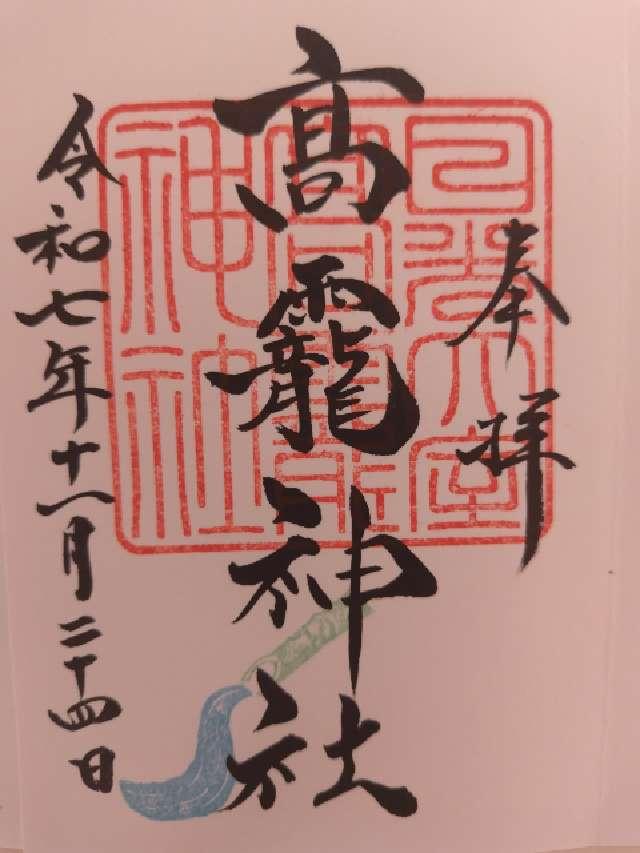 奉拝
高龗神社
令和七年十一月二十四日